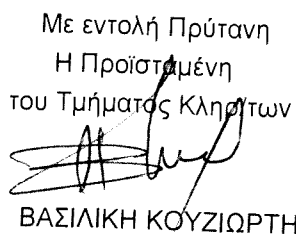 Με εντολή Πρύτανη
Η Προϊσταμένη
του Τμήματος Κλητήρων
ΒΑΣΙΛΙΚΗ ΚΟΥΖΙΩΡΤΗ